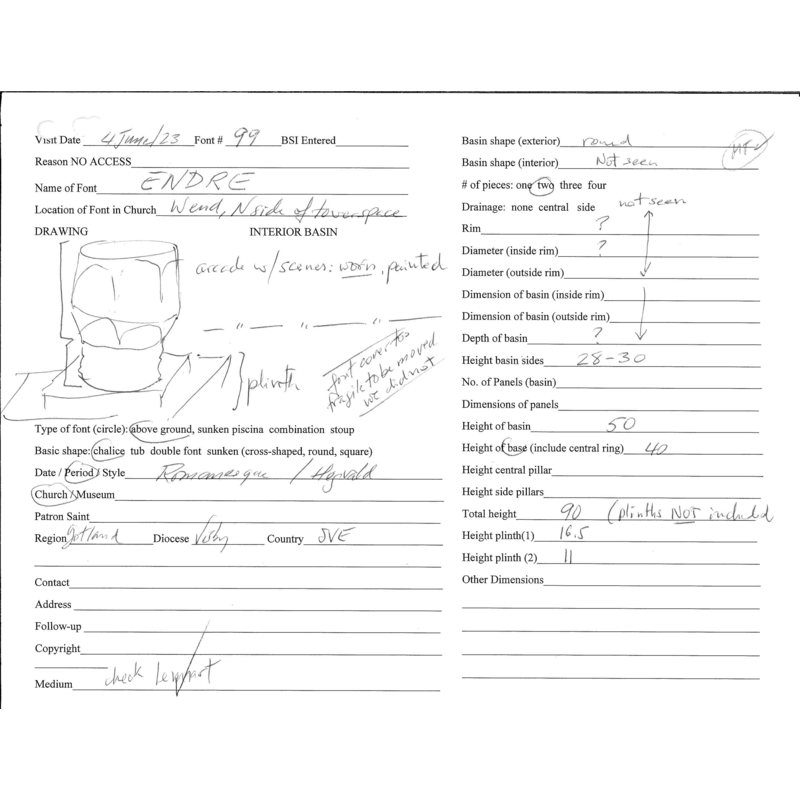 Visit Date 4 June/23 Font # 99 BSI Entered
Reason NO ACCESS
Name of Font ENDRE
Location of Font in Church W end, N side of tower space
DRAWING INTERIOR BASIN
arcade w/ scenes: worn, painted
— " — — " —
} plinth
font cover too
fragile to be moved
we did not
Type of font (circle): above ground, sunken piscina combination stoup
Basic shape: chalice tub double font sunken (cross-shaped, round, square)
Date / Period / Style Romanesque / Hegvald
Church / Museum
Patron Saint
Region Gotland Diocese Visby Country SVE
Contact
Address
Follow-up
Copyright
Medium check
Basin shape (exterior) round
Basin shape (interior) Not seen
# of pieces: one two three four
Drainage: none central side not seen
Rim ?
Diameter (inside rim) ?
Diameter (outside rim)
Dimension of basin (inside rim)
Dimension of basin (outside rim)
Depth of basin ?
Height basin sides 28-30
No. of Panels (basin)
Dimensions of panels
Height of basin 50
Height of base (include central ring) 40
Height central pillar
Height side pillars
Total height 90 (plinths NOT included
Height plinth(1) 16.5
Height plinth (2) 11
Other Dimensions